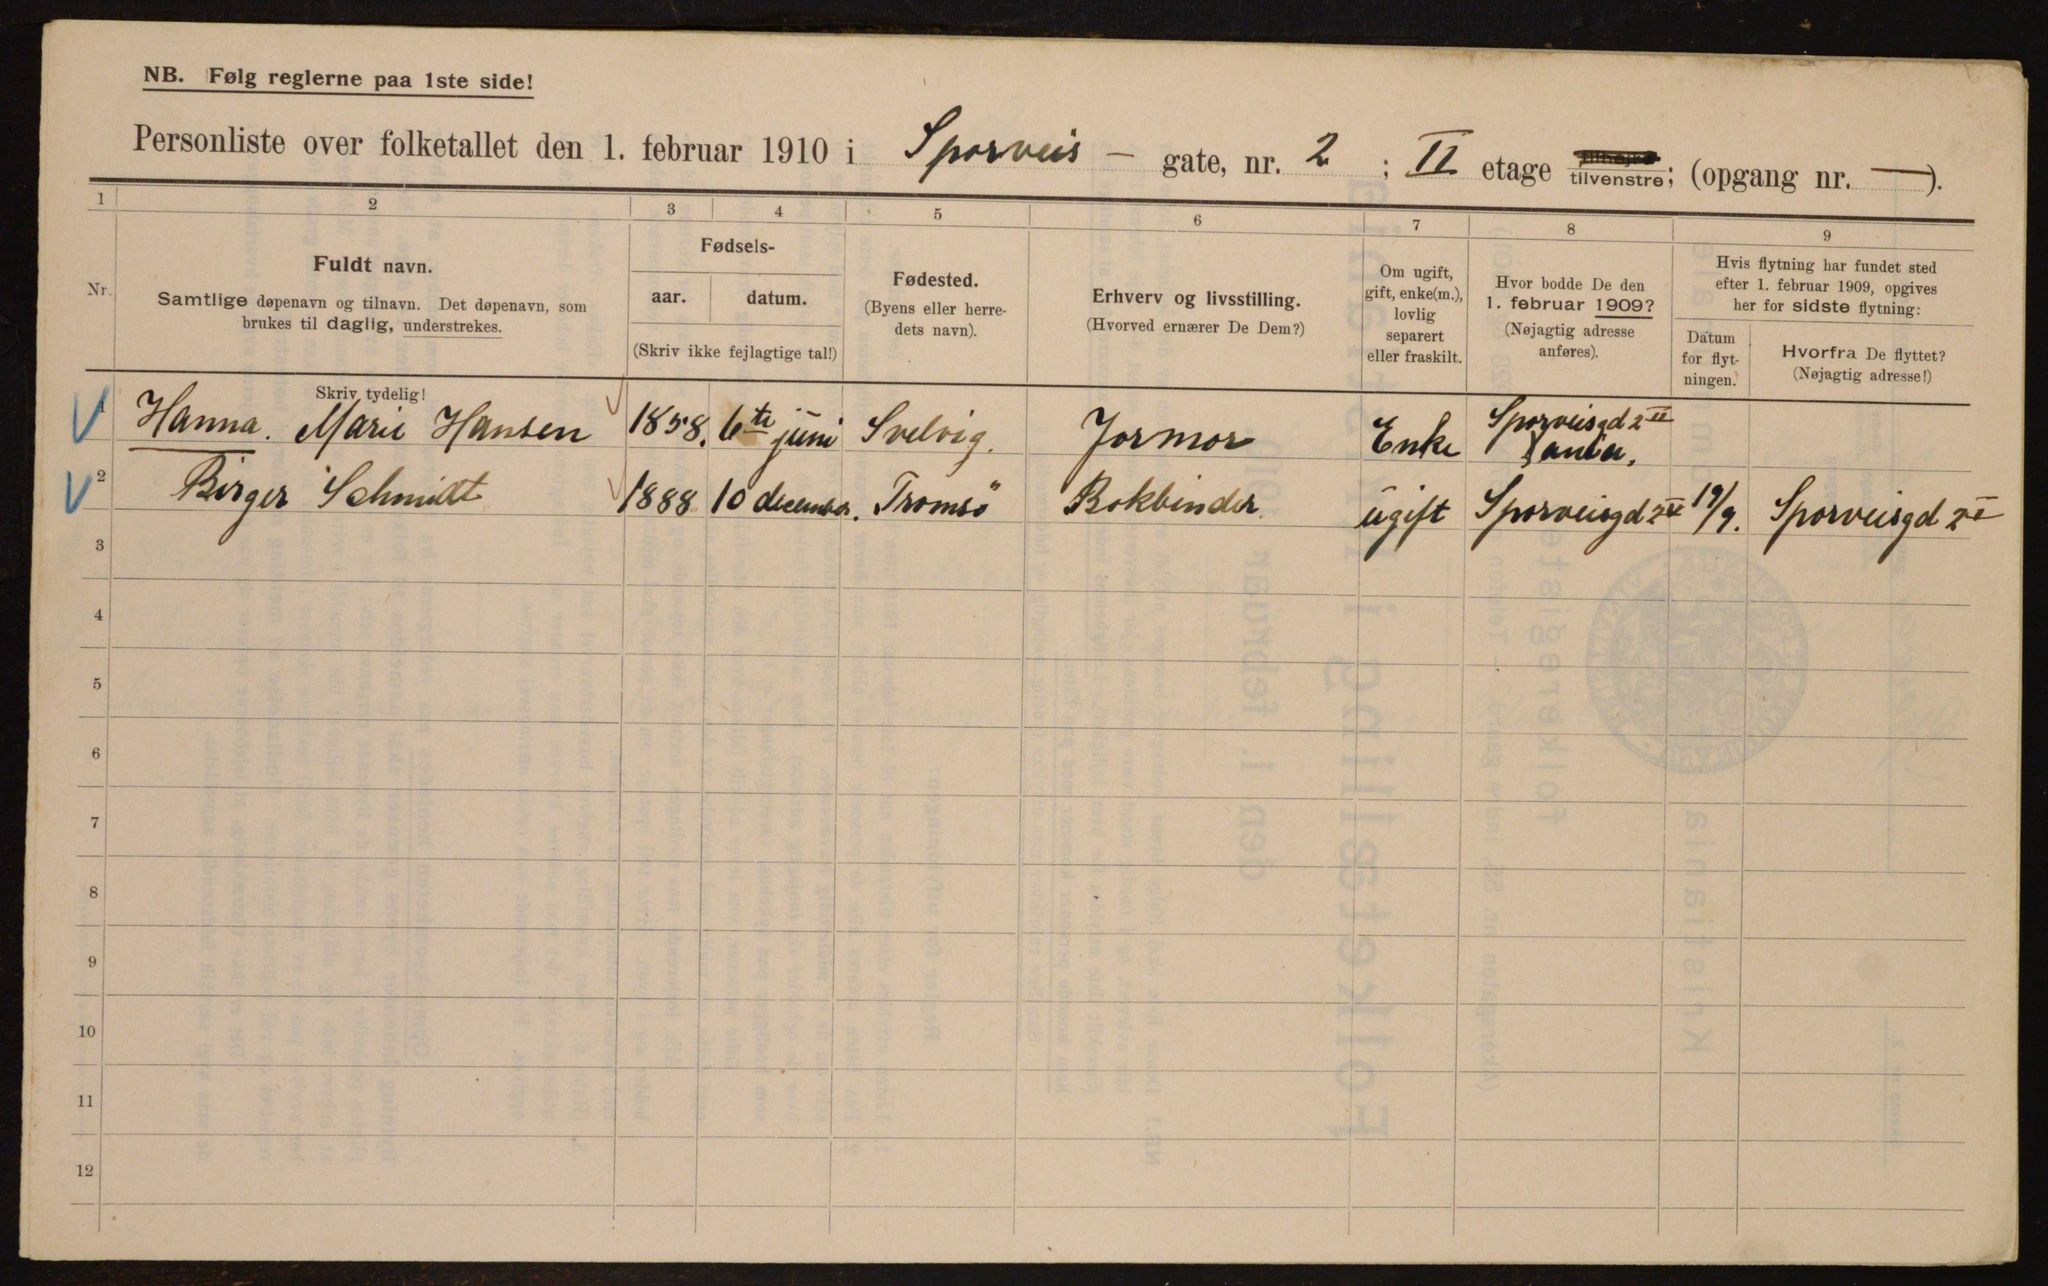 NB. Følg reglerne paa 1ste side!
Personliste over folketallet den 1. februar 1910 i Sporveis - gate, nr. 2 ; II etage tilhøjre tilvenstre; (opgang nr. — ).
1 2 3 4 5 6 7 8 9
Nr.
Fuldt navn.
Samtlige døpenavn og tilnavn. Det døpenavn, som
brukes til daglig, understrekes.
Skriv tydelig!
Fødsels-
aar. datum.
(Skriv ikke fejlagtige tal!)
Fødested.
(Byens eller herre-
dets navn).
Erhverv og livsstilling.
(Hvorved ernærer De Dem?)
Om ugift,
gift, enke(m.),
lovlig
separert
eller fraskilt.
Hvor bodde De den
1. februar 1909?
(Nøjagtig adresse
anføres).
Hvis flytning har fundet sted
efter 1. februar 1909, opgives
her for sidste flytning:
Datum
for flyt-
ningen.
Hvorfra De flyttet?
(Nøjagtig adresse!)
1 Hanna. Marie Hansen 1858. 6te juni Svelvig. Jormor Enke Sporveisgd 2 II
2 Birger Schmidt 1888 10 december. Tromsö Bokbinder ugift Sporveisgd 2 II 19/9. Sporveisgd 2 I
3
4
5
6
7
8
9
10
11
12